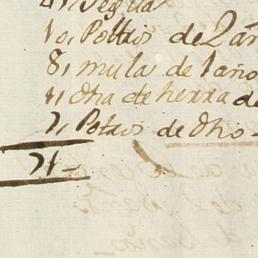 Yegua
10, Potros de 2 añ
8, mula de 1 año
4, Otra de herra de
2, Potros de Dho
71-